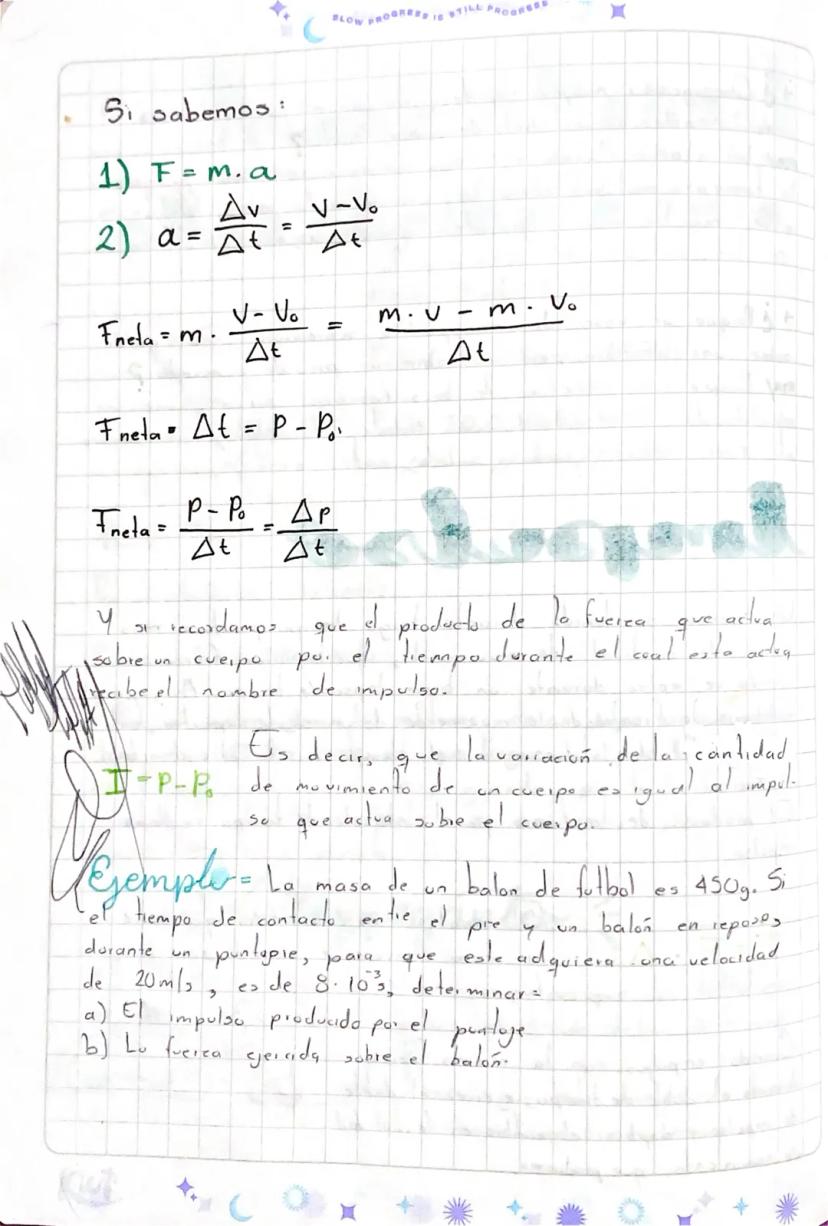 SLOW PROGRESS IS STILL PROGRESS
Si sabemos:
1) F = m. a
2) a = Δv/Δt = V-V₀/Δt
Fneta = m . V-V₀/Δt = m.v - m . V₀/Δt
Fneta • Δt = P - P₀.
Fneta = P - P₀/Δt = Δp/Δt
Y si recordamos que el producto de la fuerza que actua
sobre un cuerpo por el tiempo durante el cual esta actua
recibe el nombre de impulso.
I = P-P₀
Es decir, que la variación de la cantidad
de movimiento de un cuerpo es igual al impul-
so que actua sobre el cuerpo.
Ejemplo = La masa de un balon de futbol es 450g. Si
el tiempo de contacto entre el pie y un balón en reposos
durante un puntapie, para que este adquiera una velocidad
de 20m/s, es de 8·10⁻³s, determinar=
a) El impulso producido por el
b) La fuerza ejercida sobre el balón.